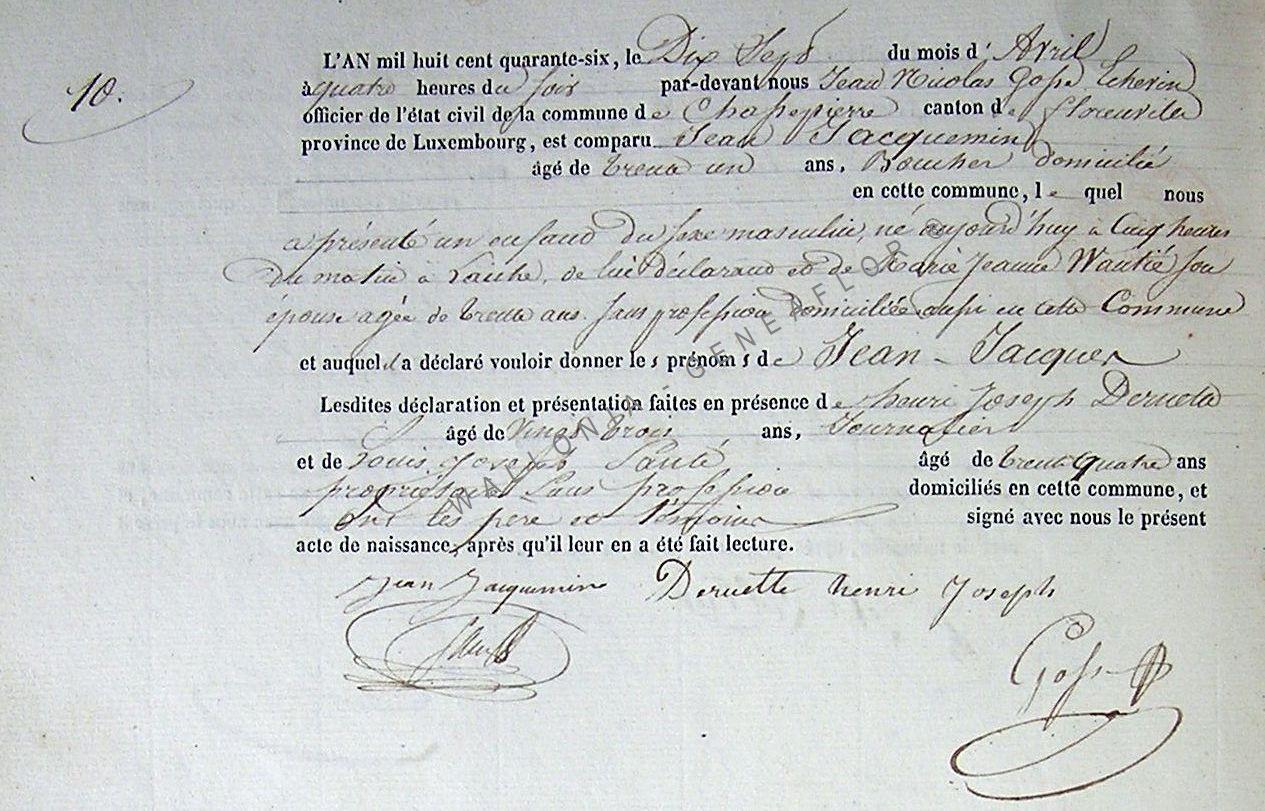 10.
L'AN mil huit cent quarante-six, le Dix Sept du mois d' Avril
à quatre heures du soir par-devant nous Jean Nicolas Gosse Echevin
officier de l'état civil de la commune de Chassepierre canton de florenville
province de Luxembourg, est comparu Jean Jacquemin
âgé de trente un ans, Boucher domicilié
en cette commune, lequel nous
a présenté un enfant du sexe masculin, né aujourd'huy à Cinq heures
du matin à Laiche, de lui déclarant et de Marie Jeanne Wautié son
épouse agée de trente ans sans profession domiciliée aussi en cette Commune
et auquel il a déclaré vouloir donner les prénoms de Jean-Jacques
Lesdites déclaration et présentation faites en présence de henri Joseph Deruette
âgé de vingt trois ans, Journalier
et de Louis Joseph âgé de trente quatre ans
sans profession domiciliés en cette commune, et
ont les père et témoins signé avec nous le présent
acte de naissance, après qu'il leur en a été fait lecture.
Jean Jacquemin Deruette henri Joseph
Gosse
WALLONIA - GENEAFLOR ©